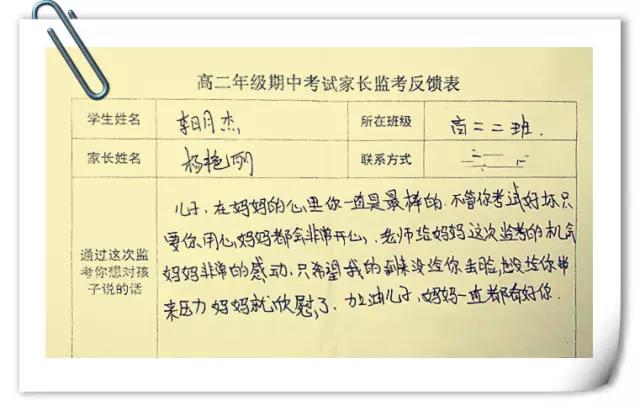 高二年级期中考试家长监考反馈表
学生姓名 明杰 所在班级 高二二班.
家长姓名 杨艳丽 联系方式
通过这次监考你想对孩子说的话
儿子,在妈妈的心里你一直是最棒的.不管你考试好坏只
要你用心,妈妈都会非常开心,老师给妈妈这次监考的机会
妈妈非常的感动,只希望我的到来没给你丢脸,也没给你带
来压力妈妈就欣慰了,加油儿子,妈妈一直都看好你.